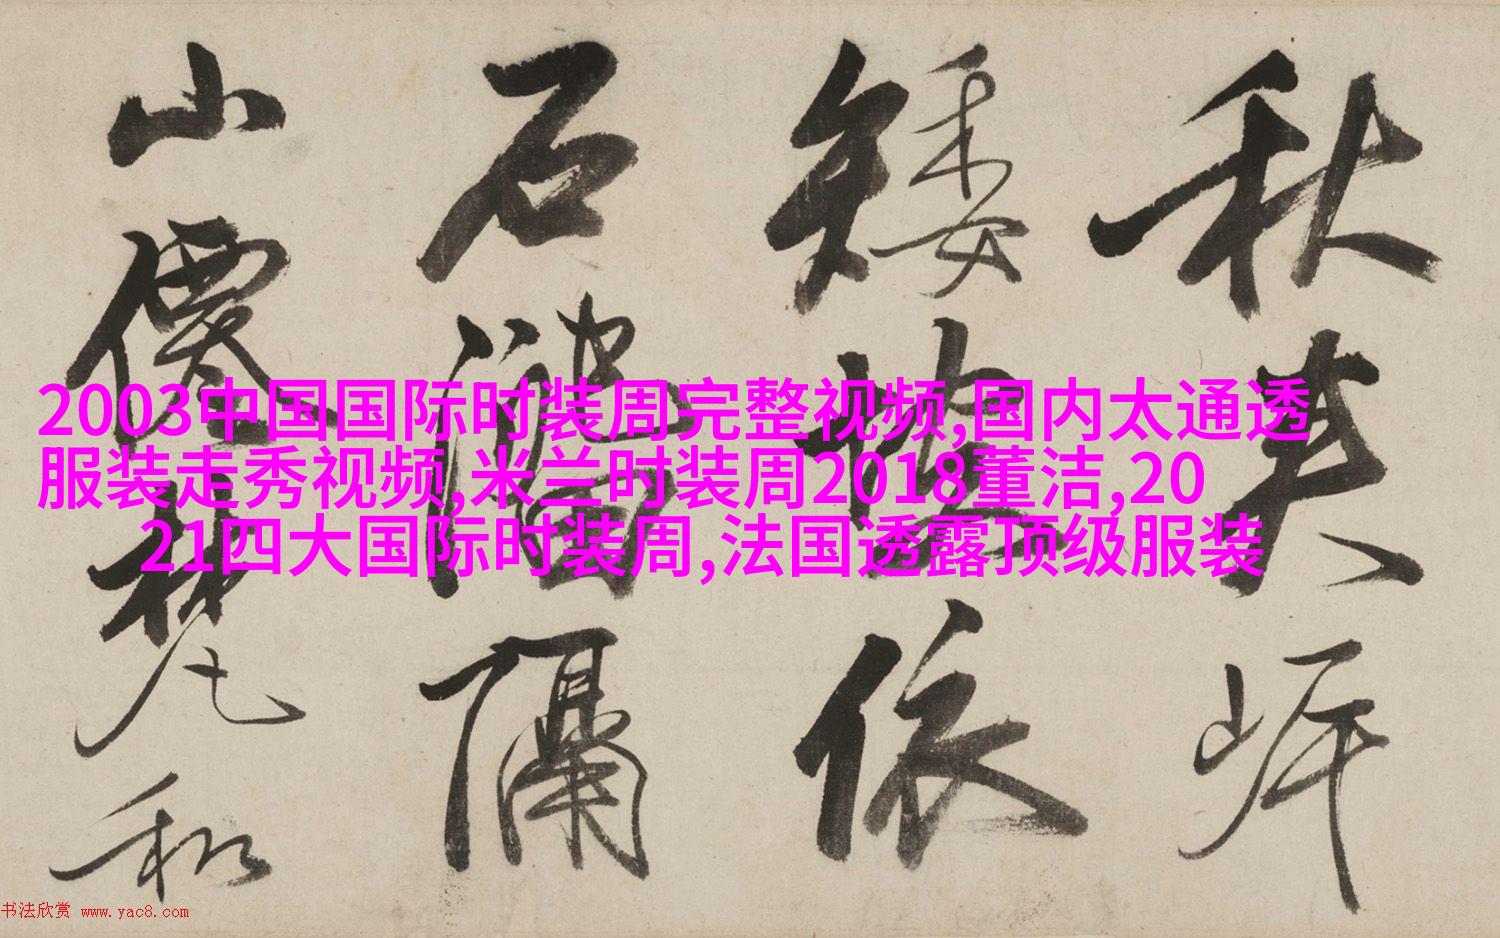 2003中国国际时装周完整视频,国内太通透
服装走秀视频,米兰时装周2018董洁,20
21四大国际时装周,法国透露顶级服装
秋
矮依
石隔
山梵和
书法欣赏 www.yac8.com